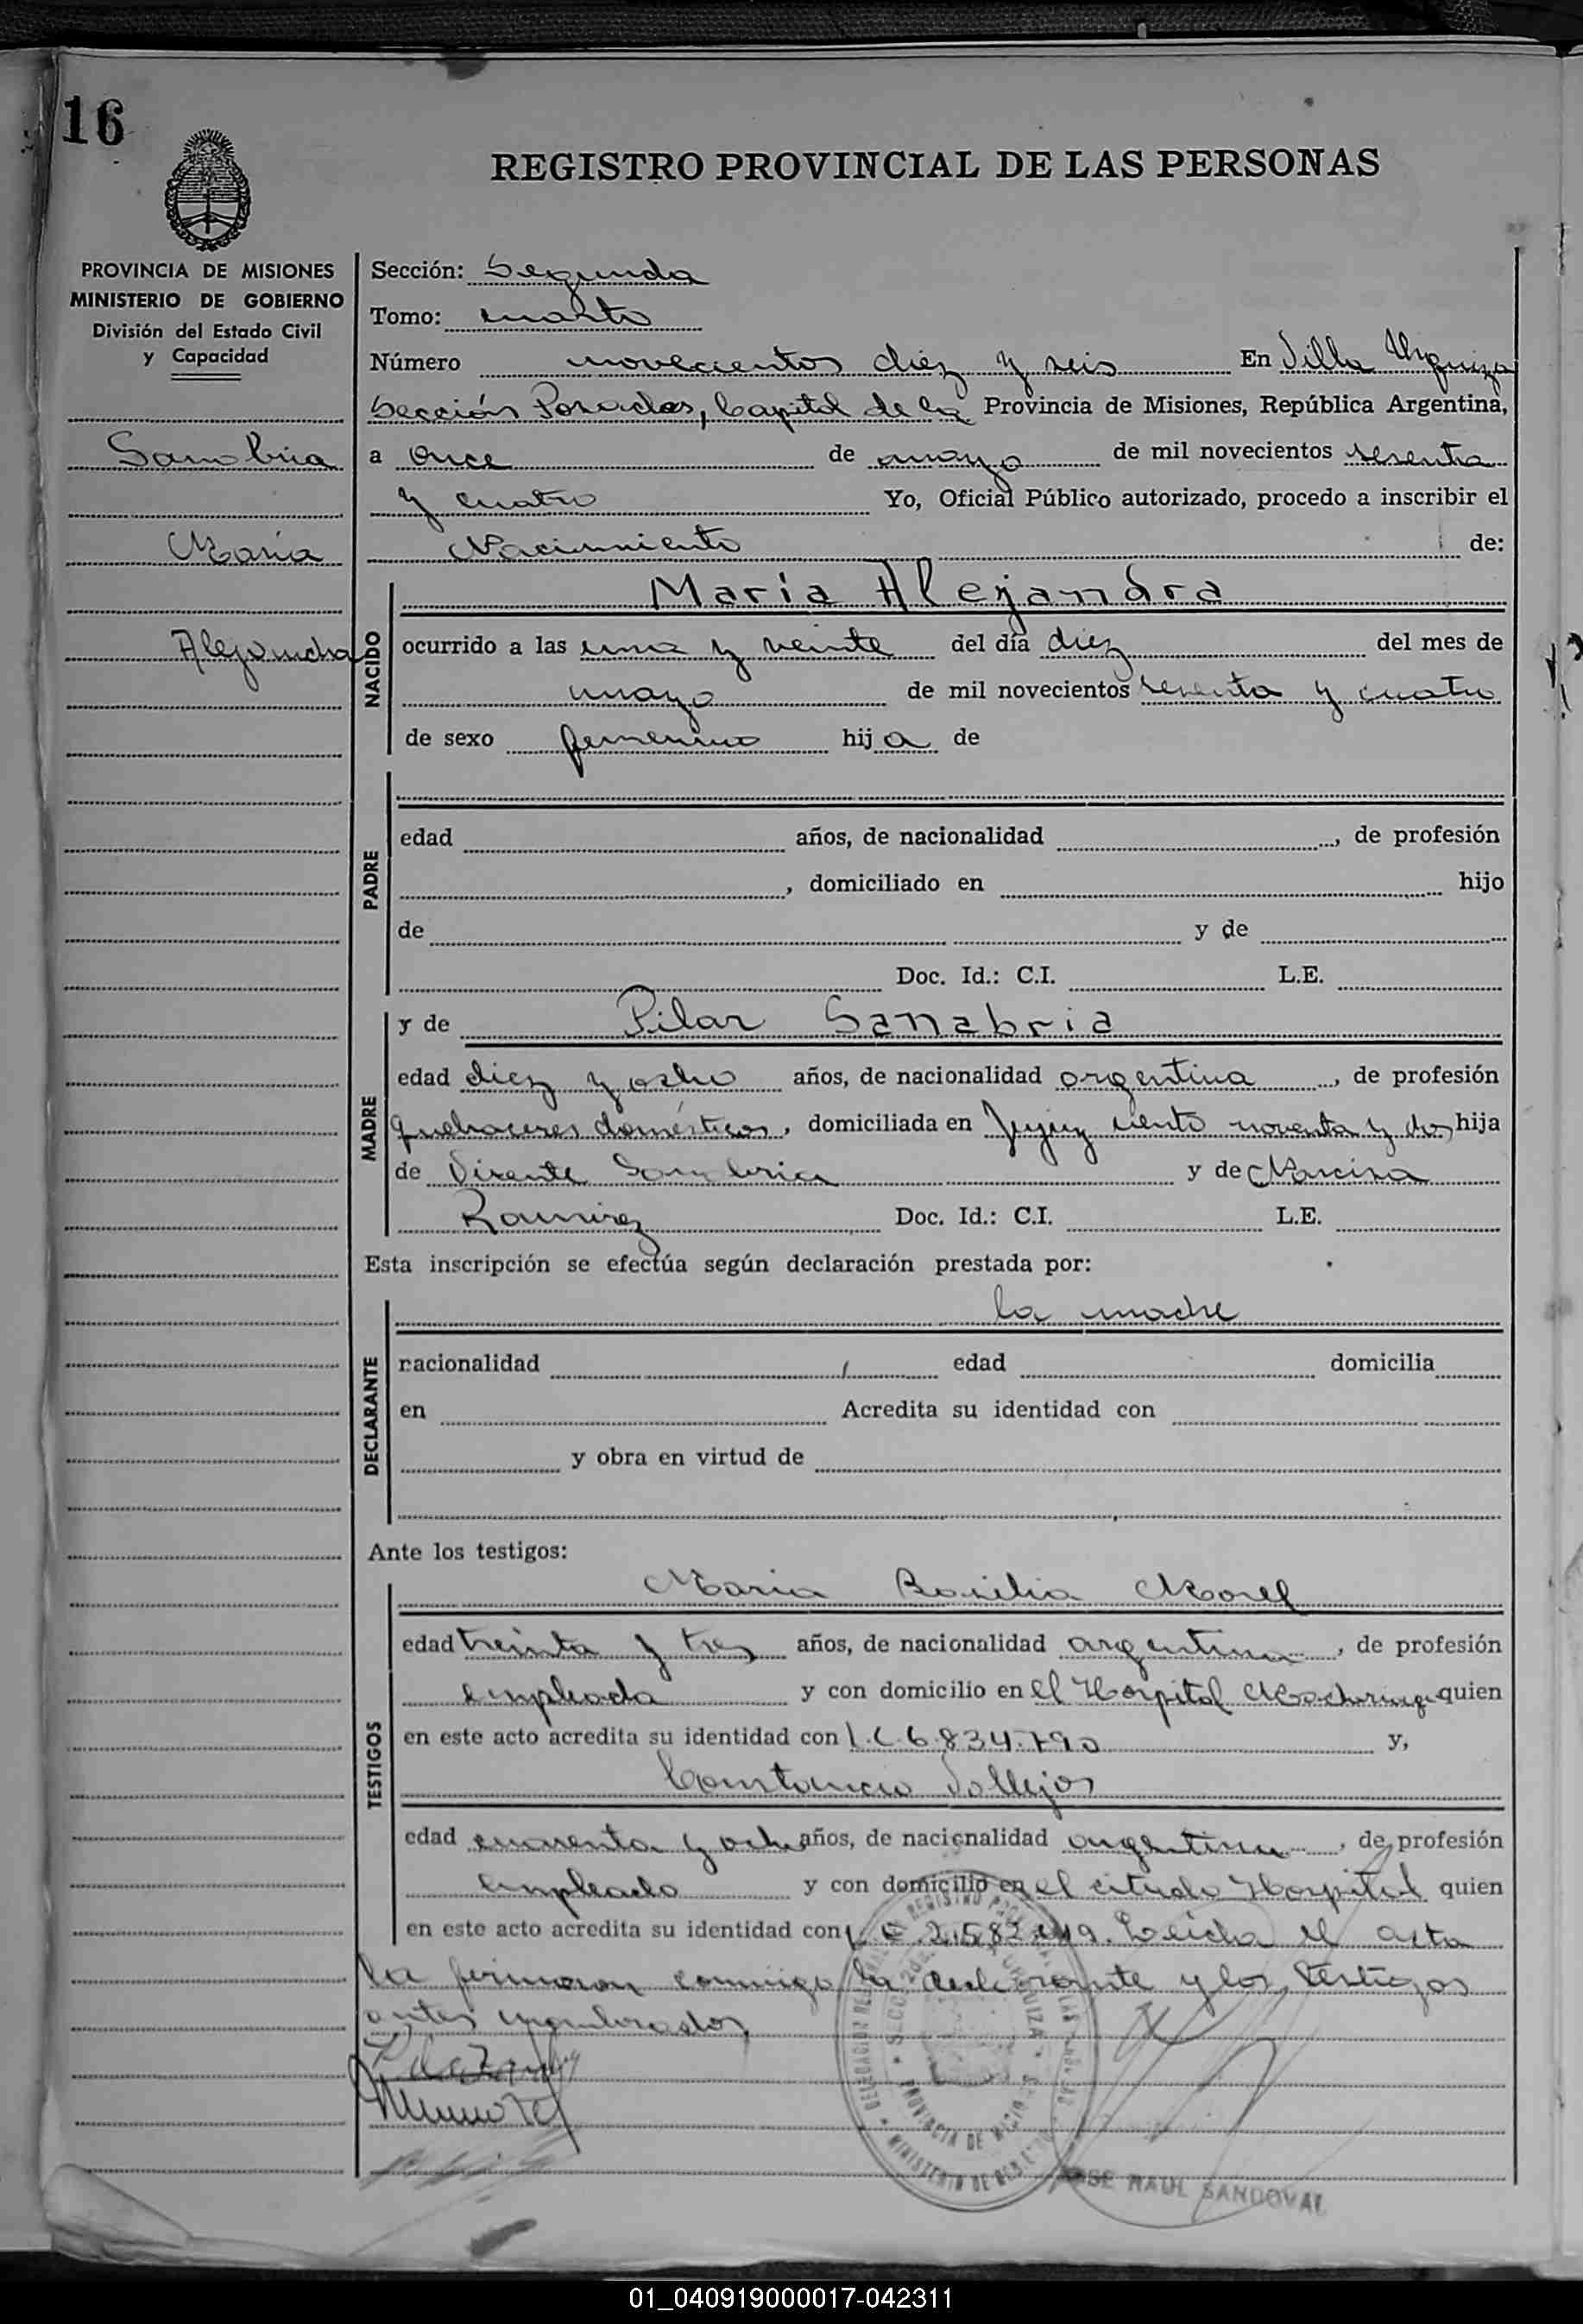 16
REGISTRO PROVINCIAL DE LAS PERSONAS
PROVINCIA DE MISIONES
MINISTERIO DE GOBIERNO
División del Estado Civil
y Capacidad
Sanabria
María
Alejandra
Sección: Segunda
Tomo: cuarto
Número novecientos diez y seis En Villa Urquiza
Sección Posadas, Capital de la Provincia de Misiones, República Argentina,
a once de mayo de mil novecientos sesenta
y cuatro Yo, Oficial Público autorizado, procedo a inscribir el
Nacimiento de:
NACIDO
María Alejandra
ocurrido a las una y veinte del día diez del mes de
mayo de mil novecientos sesenta y cuatro
de sexo femenino hija de
PADRE
edad años, de nacionalidad , de profesión
, domiciliado en hijo
de y de
Doc. Id.: C.I. L.E.
MADRE
y de Pilar Sanabria
edad diez y ocho años, de nacionalidad argentina, de profesión
quehaceres domésticos, domiciliada en Jujuy ciento noventa y dos hija
de Vicente Sanabria y de Narcisa
Ramirez Doc. Id.: C.I. L.E.
Esta inscripción se efectúa según declaración prestada por:
DECLARANTE
la madre
nacionalidad edad domicilia
en Acredita su identidad con
y obra en virtud de
Ante los testigos:
TESTIGOS
Maria Rosilia Morel
edad treinta y tres años, de nacionalidad argentina, de profesión
empleada y con domicilio en el Hospital Madariaga quien
en este acto acredita su identidad con L.C 6.834.790 y,
Constancio Vallejos
edad cuarenta y ocho años, de nacionalidad argentina, de profesión
empleado y con domicilio en el citado Hospital quien
en este acto acredita su identidad con L.E. Leida el acta
la firmaron conmigo la declarante y los testigos
antes nombrados
JOSE RAUL SANDOVAL
01_040919000017-042311